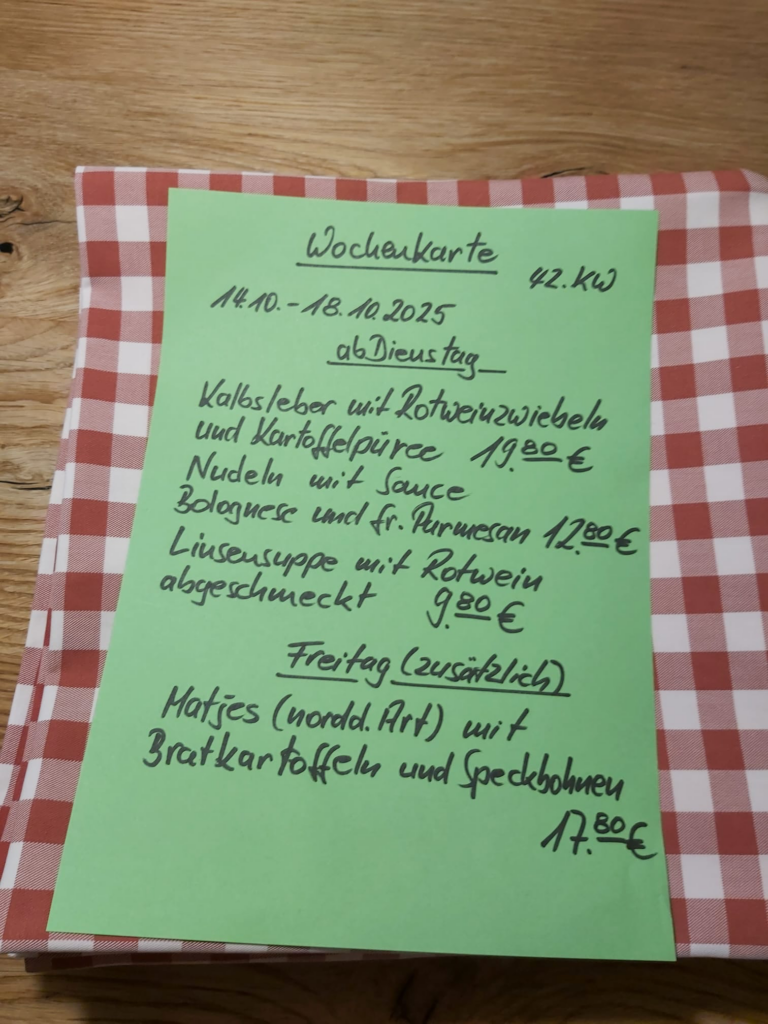 Wochenkarte
42.KW
14.10.-18.10.2025
ab Dienstag
Kalbsleber mit Rotweinzwiebeln
und Kartoffelpüree 19.80 €
Nudeln mit Sauce
Bolognese und fr. Parmesan 12.80 €
Linsensuppe mit Rotwein
abgeschmeckt 9.80 €
Freitag (zusätzlich)
Matjes (nordd. Art) mit
Bratkartoffeln und Speckbohnen
17.80 €